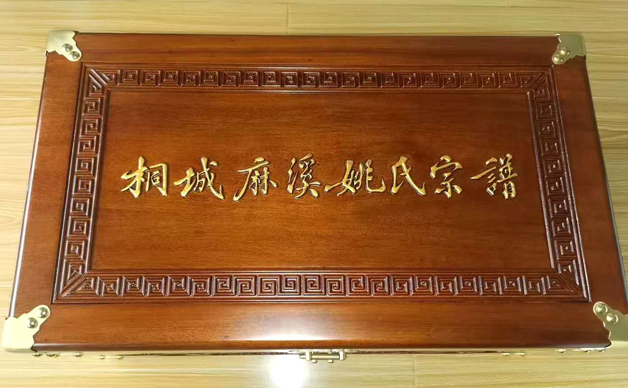 桐城麻溪姚氏宗譜